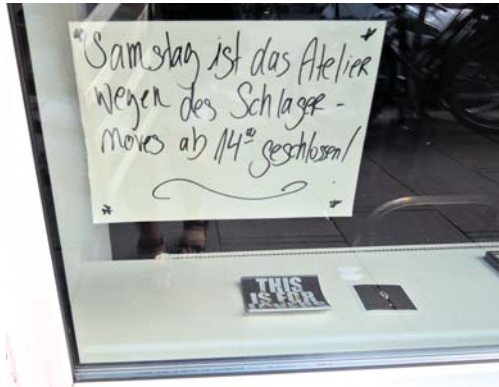 Samstag ist das Atelier
wegen des Schlager-
moves ab 14⁰⁰ geschlossen!
THIS
IS FOR